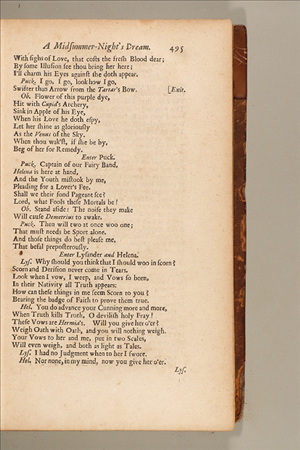 A Midſummer-Night's Dream. 495
With ſighs of Love, that coſts the freſh Blood dear;
By ſome Illuſion ſee thou bring her here;
I'll charm his Eyes againſt ſhe doth appear.
Puck. I go, I go, look how I go,
Swifter than Arrow from the Tartar's Bow. [Exit.
Ob. Flower of this purple dye,
Hit with Cupid's Archery,
Sink in Apple of his Eye,
When his Love he doth eſpy,
Let her ſhine as gloriouſly
As the Venus of the Sky.
When thou wak'ſt, if ſhe be by,
Beg of her for Remedy.
Enter Puck.
Puck. Captain of our Fairy Band,
Helena is here at hand,
And the Youth miſtook by me,
Pleading for a Lover's Fee.
Shall we their fond Pageant ſee?
Lord, what Fools theſe Mortals be!
Ob. Stand aſide: The noiſe they make
Will cauſe Demetrius to awake.
Puck. Then will two at once woo one;
That muſt needs be Sport alone.
And thoſe things do beſt pleaſe me,
That befal prepoſterouſly.
Enter Lyſander and Helena.
Lyſ. Why ſhould you think that I ſhould woo in ſcorn?
Scorn and Deriſion never come in Tears.
Look when I vow, I weep, and Vows ſo born,
In their Nativity all Truth appears:
How can theſe things in me ſeem Scorn to you?
Bearing the badge of Faith to prove them true.
Hel. You do advance your Cunning more and more,
When Truth kills Truth, O deviliſh holy Fray!
Theſe Vows are Hermia's. Will you give her o'er?
Weigh Oath with Oath, and you will nothing weigh.
Your Vows to her and me, put in two Scales,
Will even weigh, and both as light as Tales.
Lyſ. I had no Judgment when to her I ſwore.
Hel. Nor none, in my mind, now you give her o'er.
Lyſ.